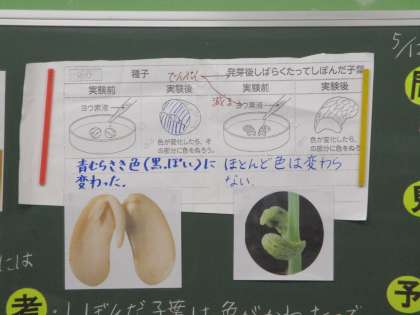 5/1
種子
でんぷん
発芽後しばらくたってしぼんだ子葉
実験前
実験後
実験前
実験後
ヨウ素液
減る
ヨウ素液
色が変化したら、そ
の部分に色をぬろう。
色が変化したら
の部分に色をぬろう。
青むらさき色(黒っぽい)に
変わった。
ほとんど色は変わら
ない。
には
考
・しぼんだ子葉は色がかわって
予